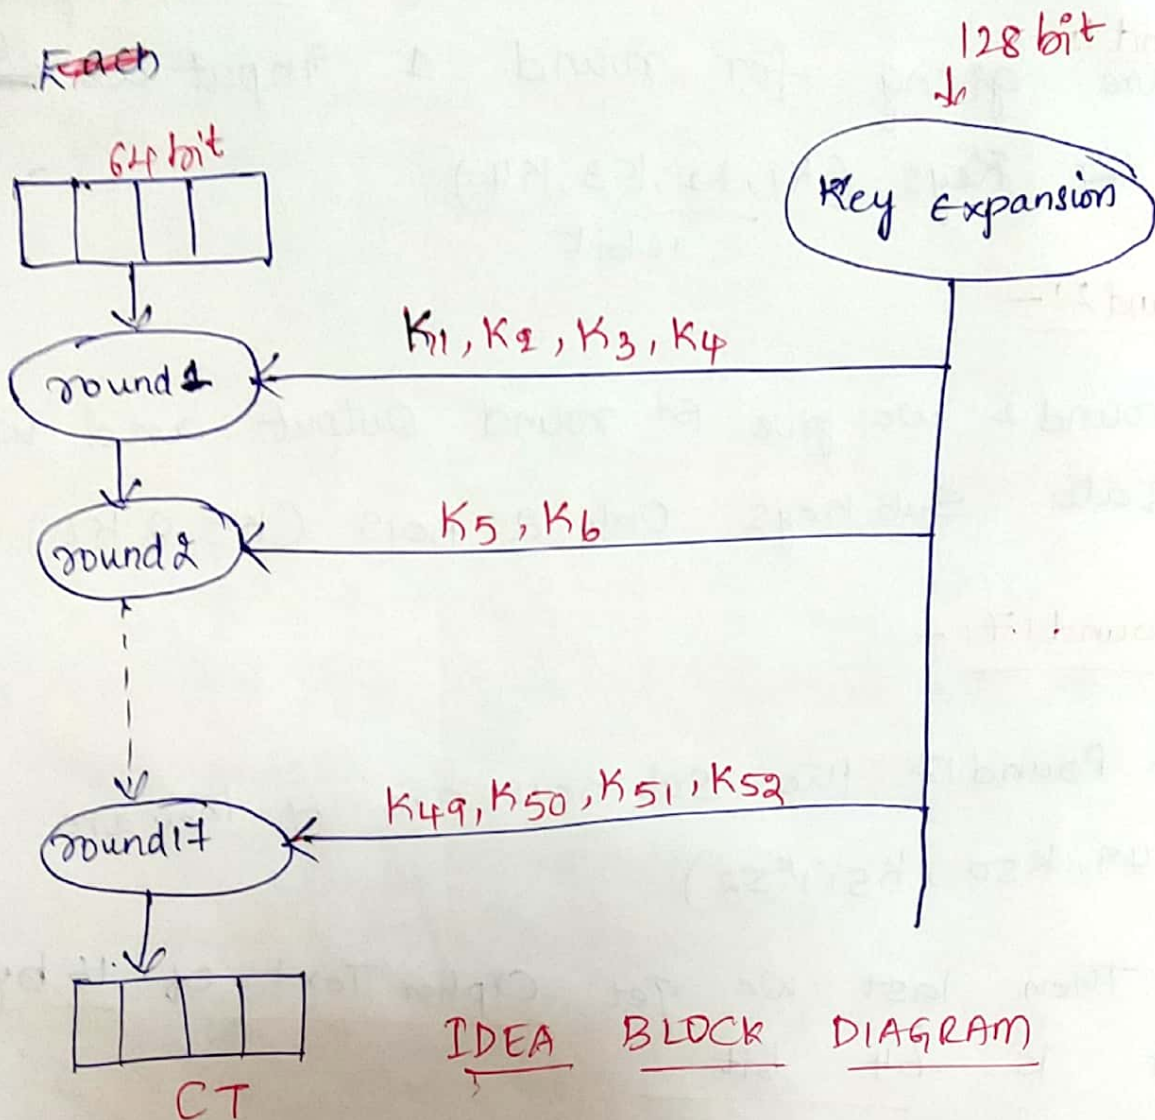 Each
128 bit
64 bit
Key Expansion
K1, K2, K3, K4
round 1
K5, K6
round 2
K49, K50, K51, K52
round 17
IDEA BLOCK DIAGRAM
CT